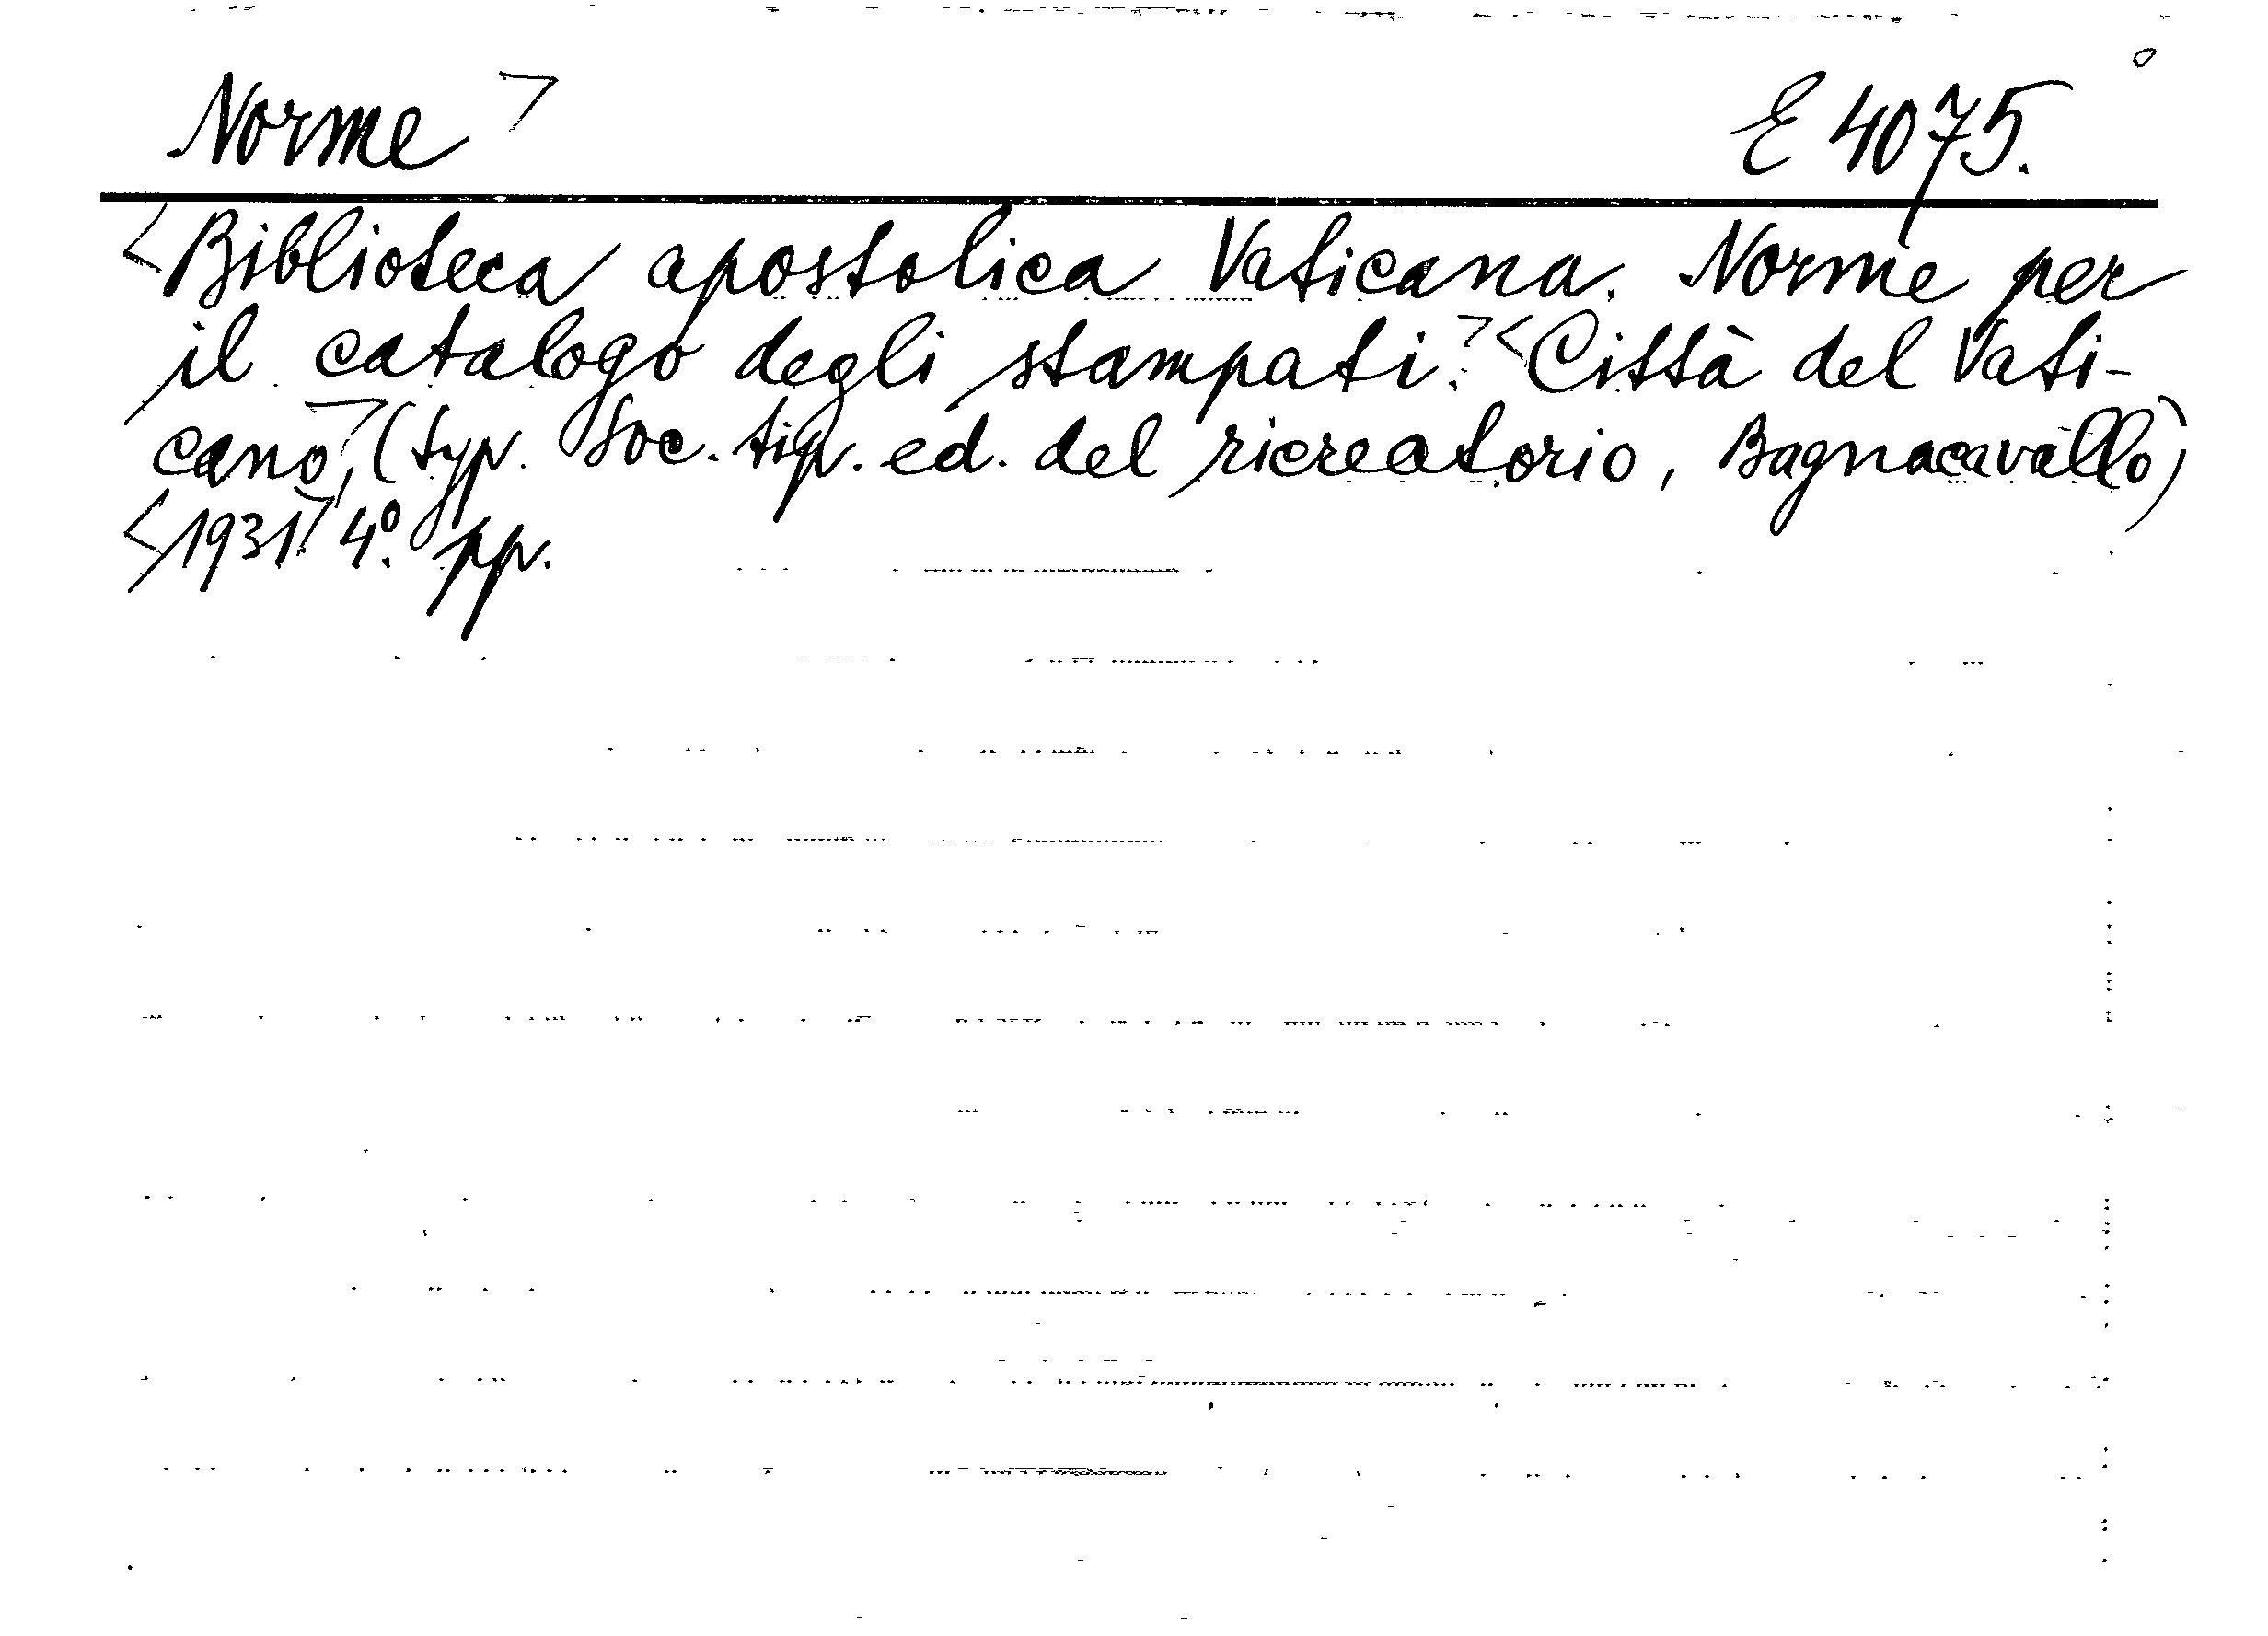 Norme ⌝ E 4075.
<Biblioteca apostolica Vaticana. Norme per
il catalogo degli stampati.⌝ <Città del Vati-
cano,⌝ (typ. Soc. tip. ed. del ricreatorio, Bagnacavallo)
<1931.⌝ 4º. pp.